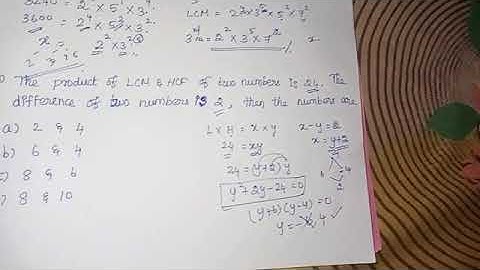 3240 = 2³ × 5¹ × 3⁴
3600 = 2⁴ × 5² × 3²
2² × 3²
LCM = 2⁴ × 3⁵ × 5² × 7²
= 2² × 3⁵ × 7²
The product of LCM & HCF of two numbers is 24. The
difference of two numbers is 2, then the numbers are
a) 2 & 4
b) 6 & 4
c) 8 & 6
8 & 10
L × H = x × y
24 = xy
24 = (y+2)y
y² + 2y - 24 = 0
(y+6)(y-4) = 0
y = -6, 4 ✓
x - y = 2
x = y+2